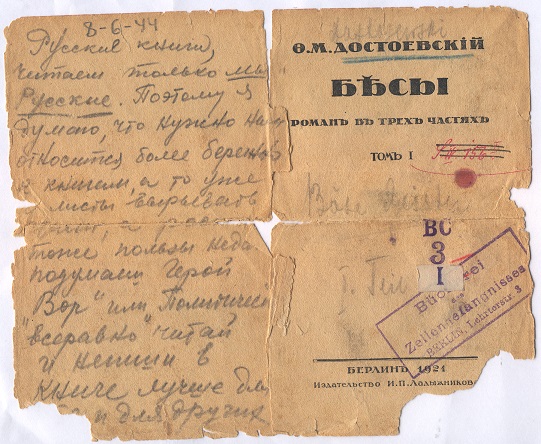 8-6-44
Русские книги,
читаем только мы
Русские. Поэтому я
думаю, что нужно нам
относится более бережно
к книгам, а то уже
листы вырывать
тоже пользы неда
подумаеш Герой
"Вор" или Политичес
"всеравно" читай
и непиши в
книге лучше для
и для других
Ѳ. М. ДОСТОЕВСКІЙ
БѢСЫ
РОМАНЪ ВЪ ТРЕХЪ ЧАСТЯХЪ
ТОМЪ I
Böse Geister
BC
3
I
I. Teil
Bücherei
des
Zellengefängnisses
BERLIN, Lehrterstr. 3
БЕРЛИНЪ 1921
Издательство И. П. Ладыжникова